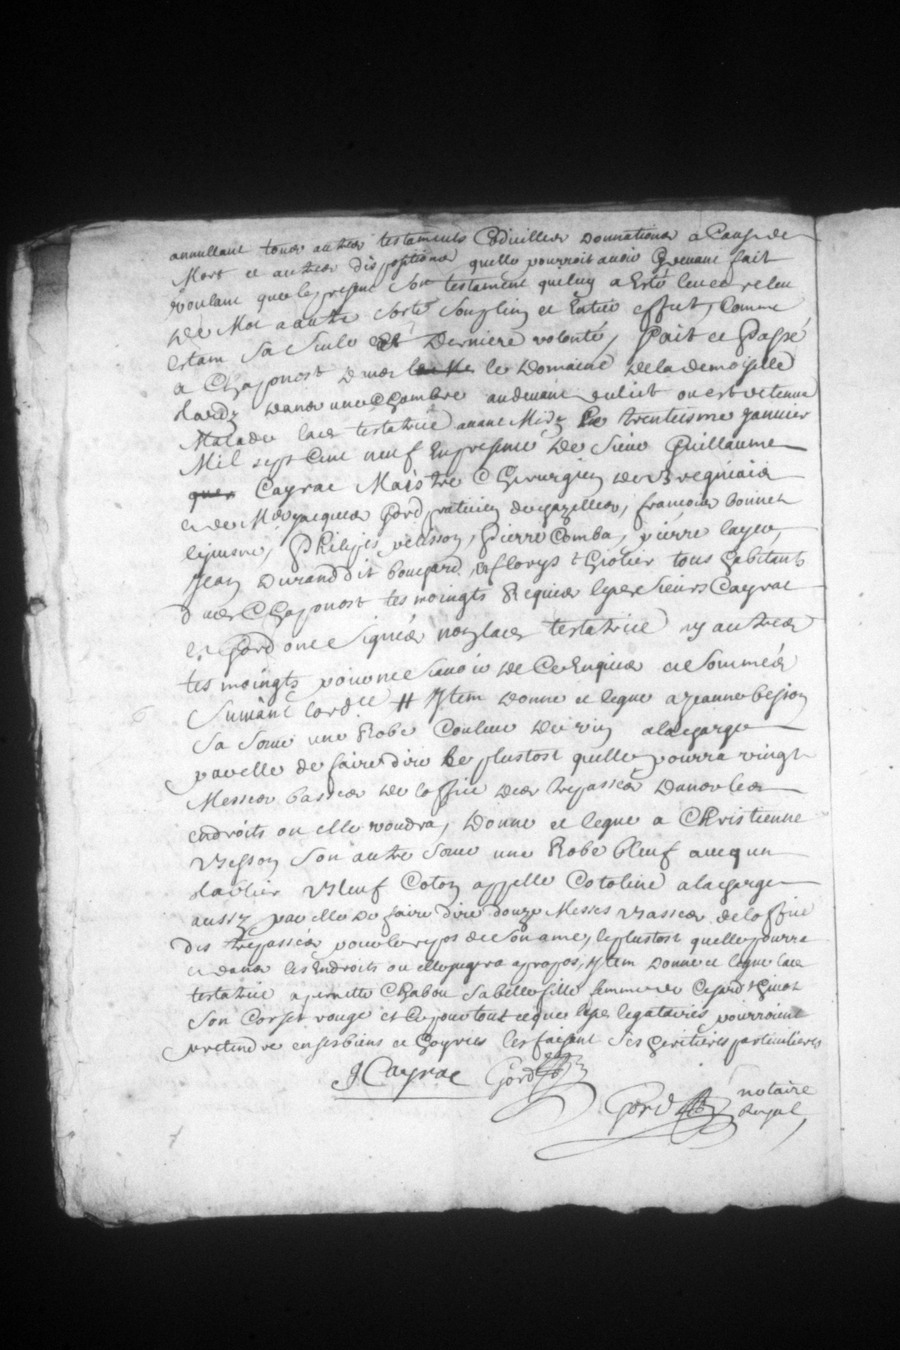 annullant tous autres testaments Codicilles Donnations a Cause de
Mort et autres dispositions quelle pourroit avoir Cy devant fait
voulant que le present son testament queluy a Esté leu et releu
de Mot a autre sorte son plein et Entier effect, Comme
estant sa seule et Derniere volonté, Fait et Passé
a Chaponost dans le Domaine de la demoiselle
dans une Chambre au devant du lict ou est detenue
Malade lade testatrice avant Midy Le trentieme Janvier
Mil sept Cent neuf En presence de Sieur Guillaume
Cayrac Maistre Chirurgien de Bregniais
et de Me Jacques Gord praticien de Vazelles, francois bonnet
le jeune, Philippe pelisson, Pierre Comba, pierre layeu,
Jean Durand dit bouchard, tous habitants
dudt Chaponost tesmoingts Requis lesdts Sieurs Cayrac
et Gord ont Signés non lade testatrice ny autres
tesmoingts pour ne scavoir de Ce Enquis et Sommés
Suivant lordce # Item donne et legue a Jeanne besson
sa Soeur une Robe Couleur de vin a la charge
par elle de faire dire le plustost quelle pourra vingt
Messes basses de loffice des trepassés dans les
endroits ou elle voudra, Donne et legue a Christienne
Besson son autre Soeur une Robe bleuf avec un
tablier bleuf Coton appellé Cotoline a la charge
aussy par elle de faire dire douze Messes basses de loffice
des trepassés pour le repos de son ame, le plustost quelle pourra
et dans les Endroits ou elle jugera apropos, Item donne et legue lade
testatrice a pernette Chabou sa belle fille femme de
son Corset rouge et Ce pour tout ce que lesdts legataires pourroient
pretendre en ses biens et hoyries les faisant ses heritieres particulieres
J Cayrac Gord
Gord notaire
Royal